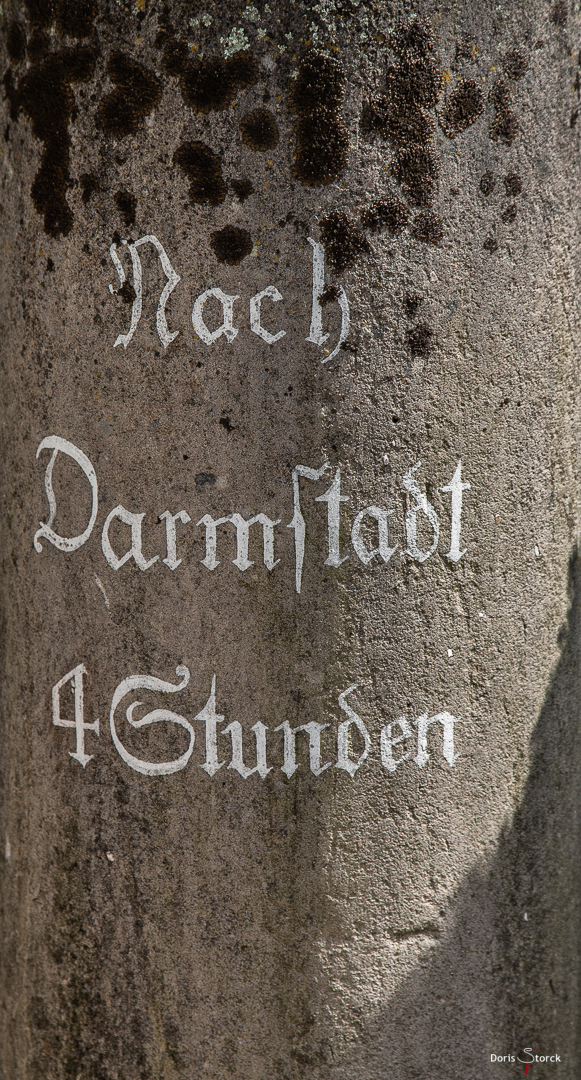 Nach
Darmſtadt
4 Stunden
Doris Storck